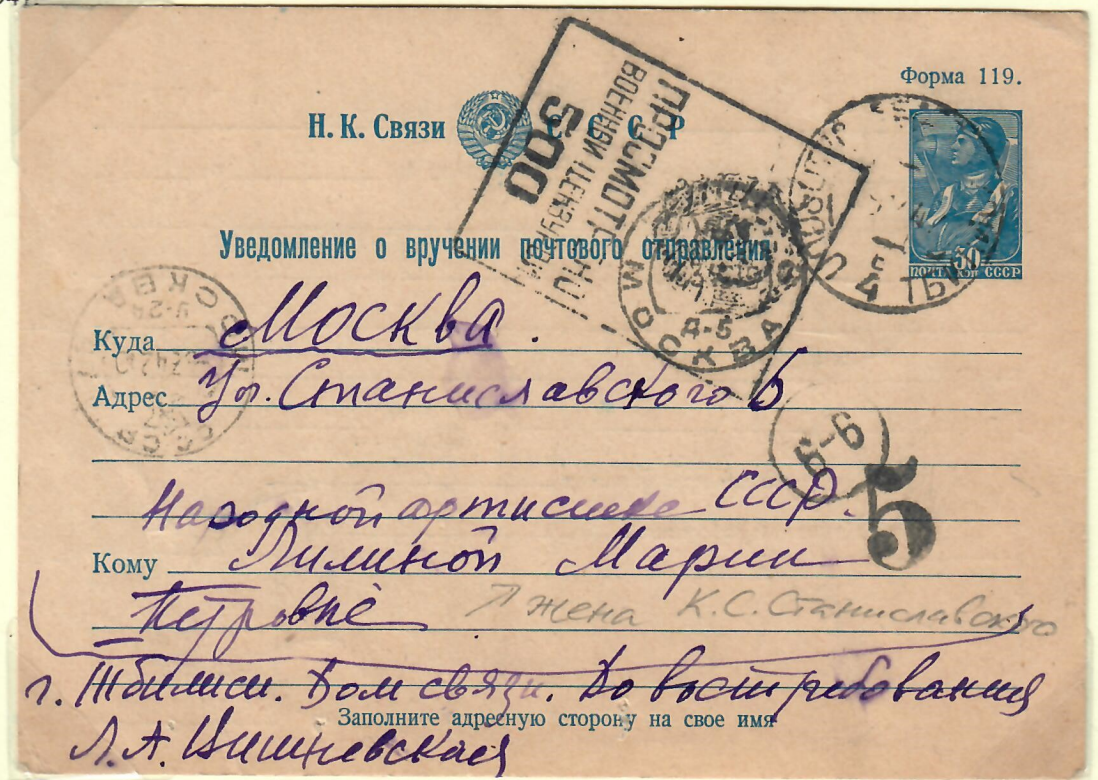 Форма 119.
Н. К. Связи С С С Р
ПРОСМОТРЕНО
ВОЕННОЙ ЦЕНЗУРОЙ
500
50
ПОЧТА КОП СССР
4
Уведомление о вручении почтового отправления
МОСКВА
Д-5
МОСКВА
СССР
Куда Москва.
Адрес Ул. Станиславского 6
6-6
5
Народной артистке СССР.
Кому Лилиной Марии
Петровне
жена К.С. Станиславского
г. Тбилиси. Дом связи. До востребования
Заполните адресную сторону на свое имя
Л. А. Вишневская